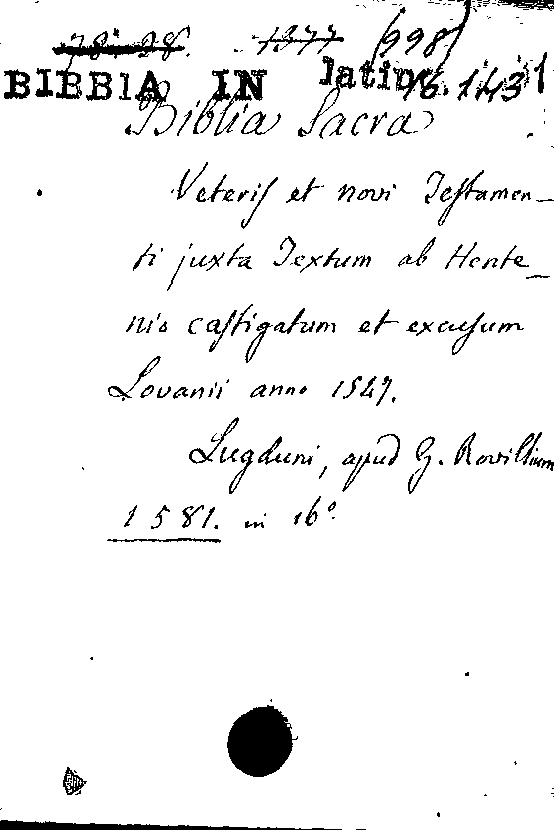 78. 28. 1377 (998)
BIBBIA IN latino 16.143
Biblia Sacra
Veteris et novi Testamen_
ti juxta Textum ab Hente_
nio castigatum et excusum
Lovanii anno 1547.
Lugduni, apud G. Rovillium
1581. in 16º.